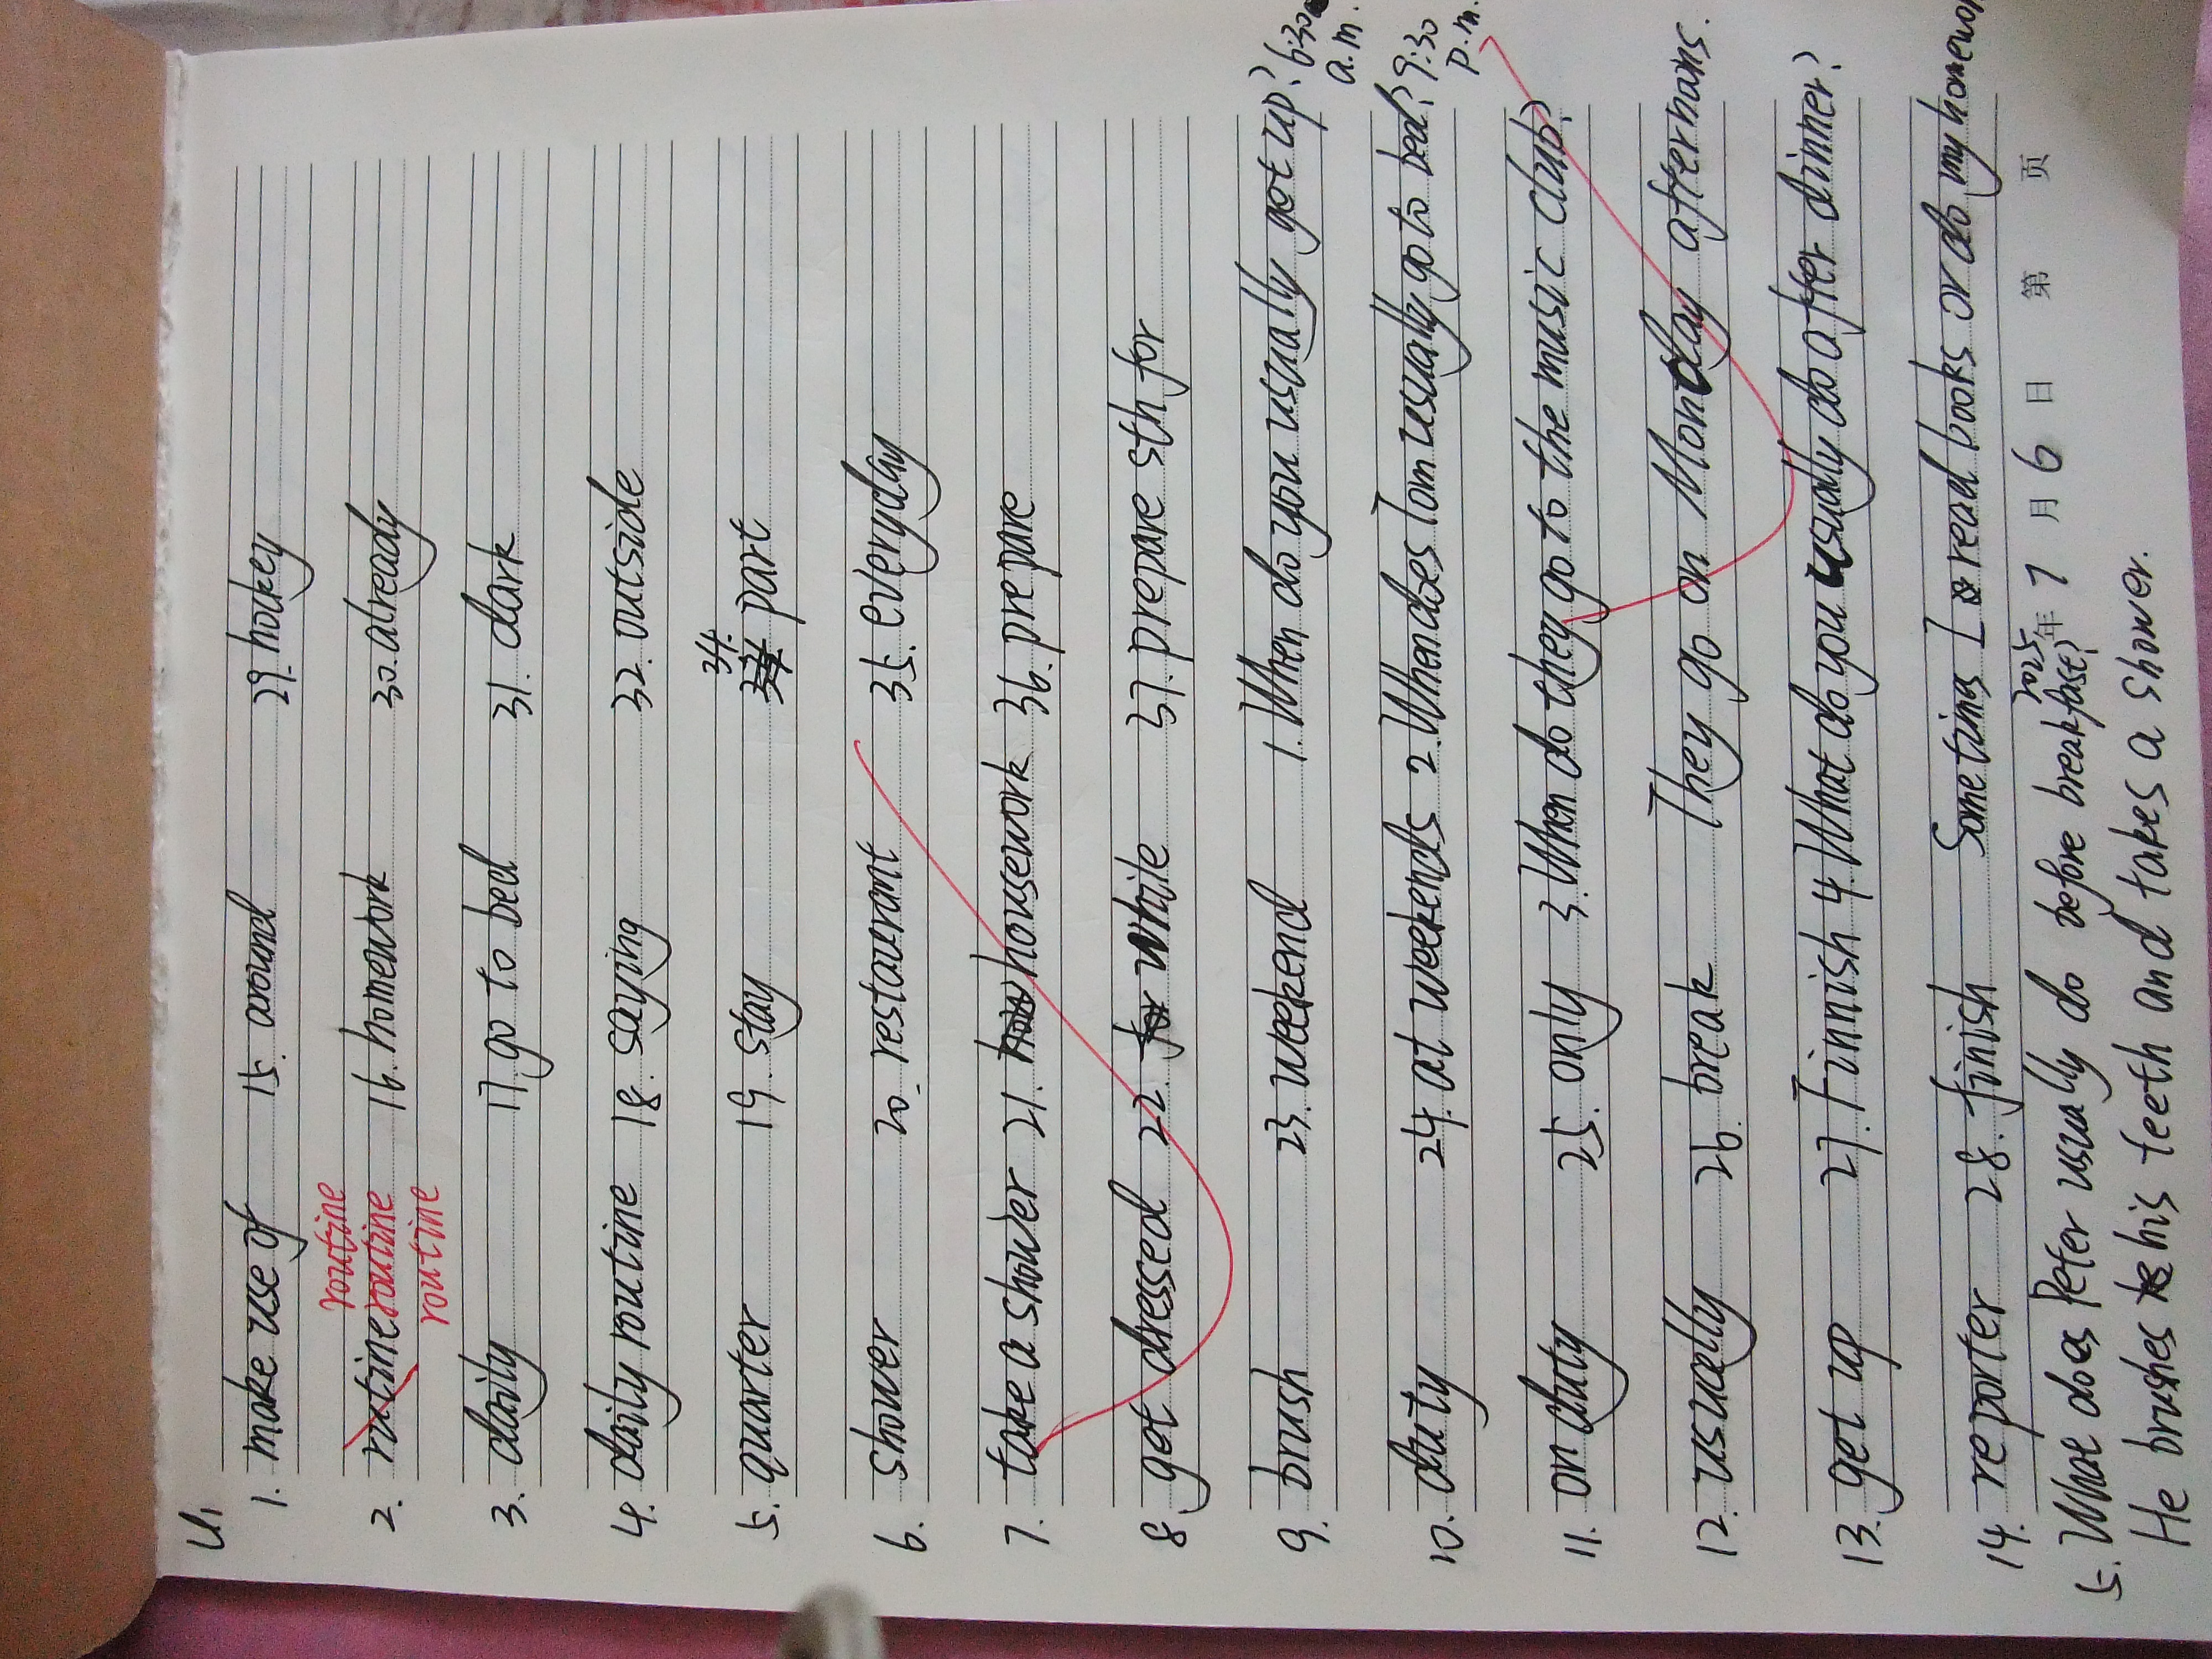 U1
1. make use of 15. around 29. hockey
routine
2. rutine routine 16. homework 30. already
routine
3. daily 17. go to bed 31. dark
4. daily routine 18. saying 32. outside
34.
5. quarter 19. stay part
6. shower 20. restaurant 35. everyday
7. take a shower 21. housework 36. prepare
8. get dressed 22. while 37. prepare sth for
9. brush 23. weekend 1. When do you usually get up? 6:30 a.m.
10. duty 24. at weekends 2. When does Tom usually go to bed? 9:30 p.m.
11. on duty 25. only 3. When do they go to the music club?
12. usually 26. break They go on Monday afternoons.
13. get up 27. Finnish 4. What do you usually do after dinner?
14. reporter 28. finish Sometimes I read books or do my homework
2025年 7 月 6 日 第 页
5. What does Peter usually do before breakfast?
He brushes his teeth and takes a shower.